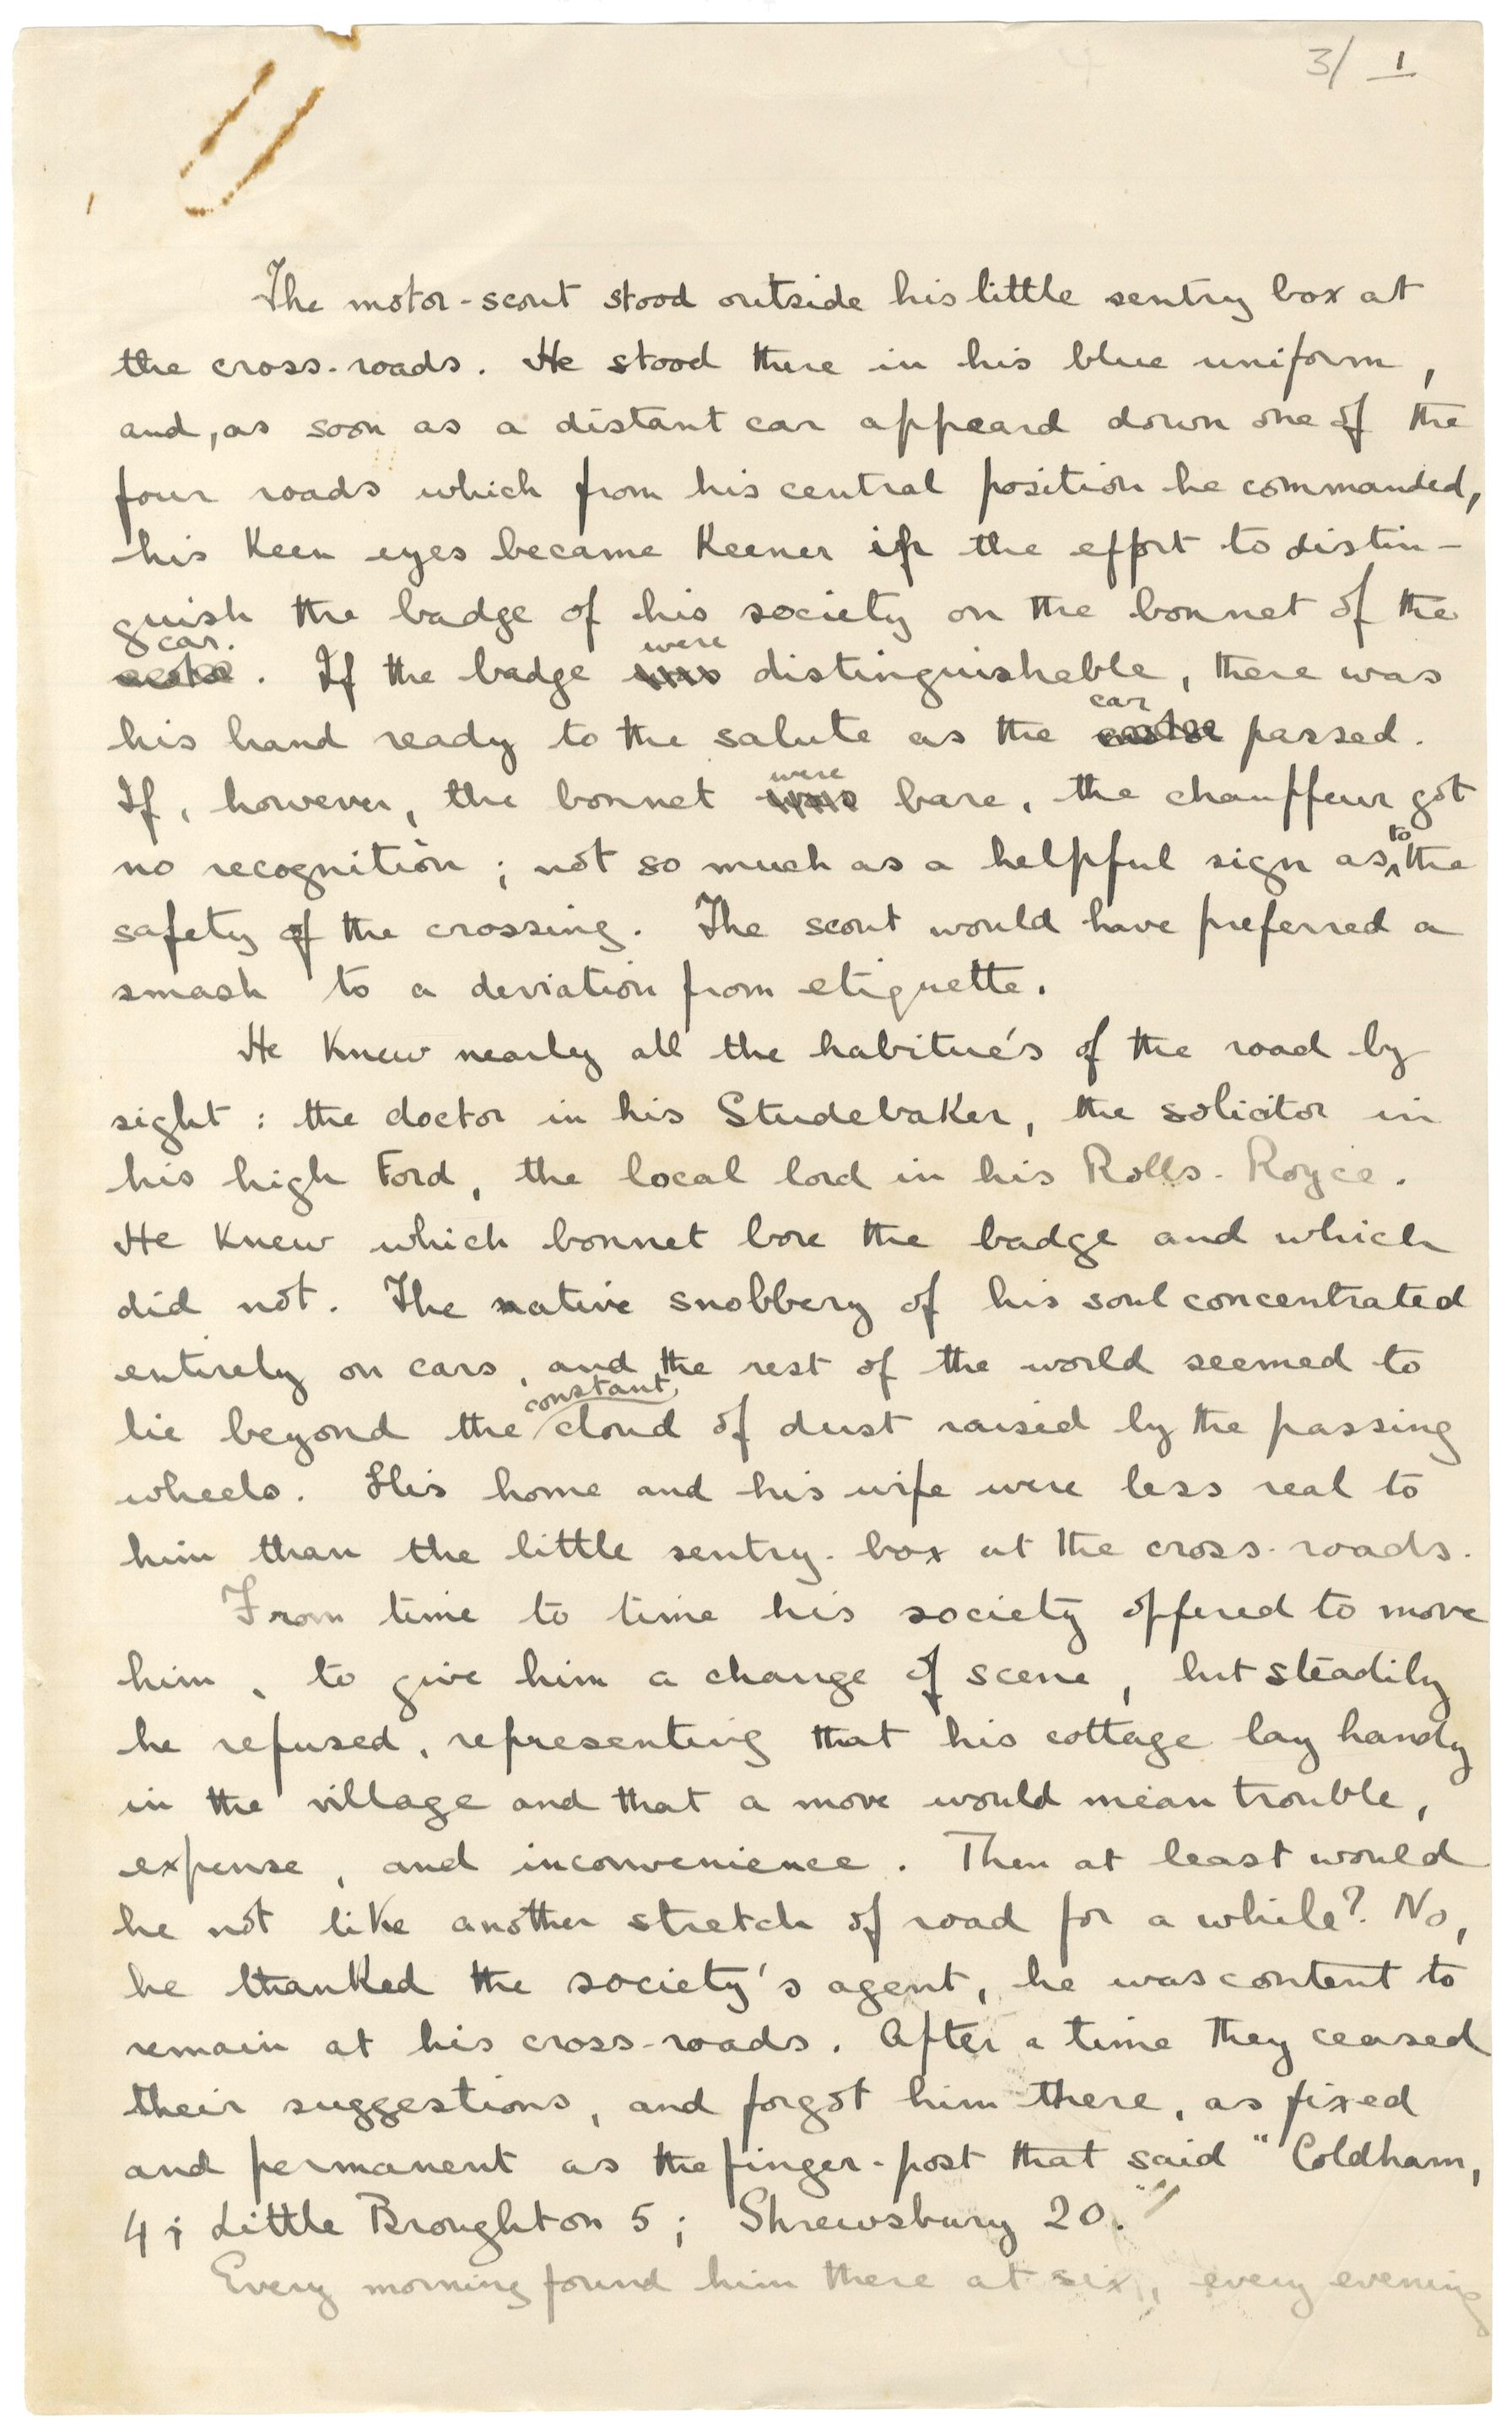 3/ 1
The motor-scout stood outside his little sentry box at
the cross-roads. He stood there in his blue uniform,
and, as soon as a distant car appeard down one of the
four roads which from his central position he commanded,
his keen eyes became keener in the effort to distin-
guish the badge of his society on the bonnet of the
car. If the badge were distinguishable, there was
his hand ready to the salute as the car passed.
If, however, the bonnet were bare, the chauffeur got
no recognition; not so much as a helpful sign as to the
safety of the crossing. The scout would have preferred a
smash to a deviation from etiquette.
He knew nearly all the habitué's of the road by
sight: the doctor in his Studebaker, the solicitor in
his high Ford, the local lord in his Rolls-Royce.
He knew which bonnet bore the badge and which
did not. The native snobbery of his soul concentrated
entirely on cars, and the rest of the world seemed to
lie beyond the constant cloud of dust raised by the passing
wheels. His home and his wife were less real to
him than the little sentry-box at the cross-roads.
From time to time his society offered to move
him, to give him a change of scene, but steadily
he refused, representing that his cottage lay handy
in the village and that a move would mean trouble,
expense, and inconvenience. Then at least would
he not like another stretch of road for a while? No,
he thanked the society's agent, he was content to
remain at his cross-roads. After a time they ceased
their suggestions, and forgot him there, as fixed
and permanent as the finger-post that said "Coldham,
4; Little Broughton 5; Shrewsbury 20."
Every morning found him there at six, every evening